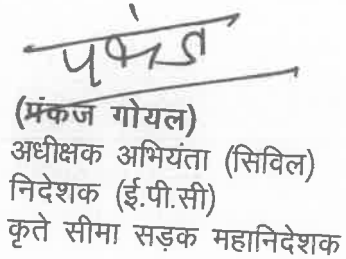 पंकज
(पंकज गोयल)
अधीक्षक अभियंता (सिविल)
निदेशक (ई.पी.सी)
कृते सीमा सड़क महानिदेशक